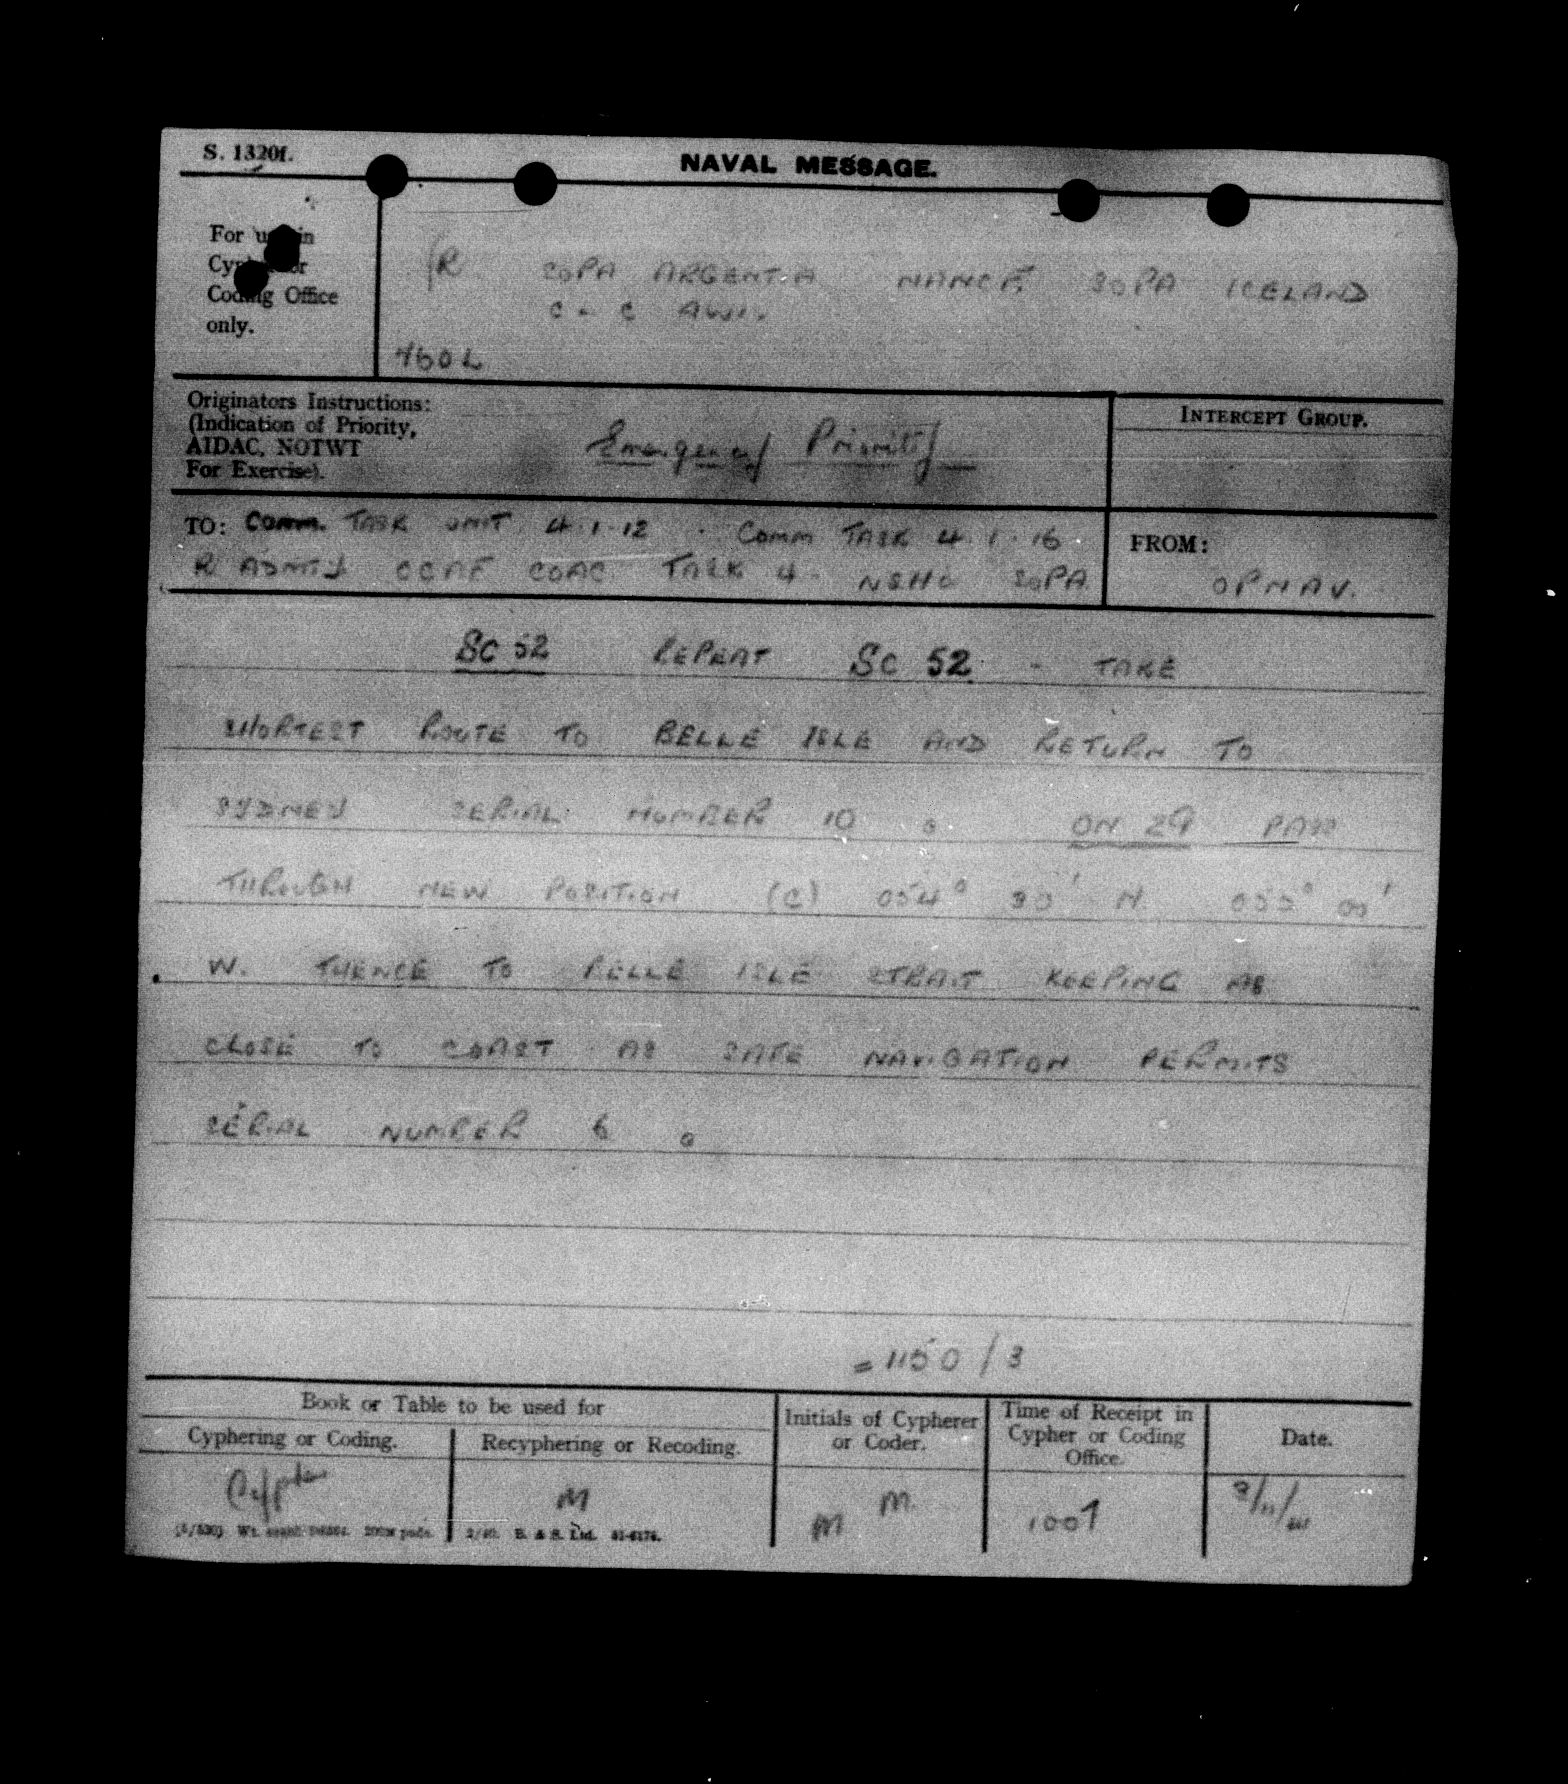 S. 1320f.
NAVAL MESSAGE.
For use in
Cypher or
Coding Office
only.
(R SOPA ARGENTIA NANCF. SOPA ICELAND
C - C AWI.
Originators Instructions:
(Indication of Priority,
AIDAC, NOTWT
For Exercise).
Emergency Priority
INTERCEPT GROUP.
TO: Comm. TASK UNIT 4.1.12 . Comm TASK 4.1.16
R ADMTY CCNF COAC TASK 4. NSHQ SOPA
FROM:
OPNAV.
SC 52 REPEAT SC 52 - TAKE
SHORTEST ROUTE TO BELLE ISLE AND RETURN TO
SYDNEY SERIAL NUMBER 10 . ON 29 PASS
THROUGH NEW POSITION (C) 054° 30' N. 055° 00'
W. THENCE TO BELLE ISLE STRAIT KEEPING AS
CLOSE TO COAST AS SAFE NAVIGATION PERMITS
SERIAL NUMBER 6 .
= 1150 / 3
Book or Table to be used for
Cyphering or Coding.
Recyphering or Recoding.
Initials of Cypherer
or Coder.
Time of Receipt in
Cypher or Coding
Office.
Date.
Cypher
M
M M
1007
3/11/41
B. & S. Ltd.